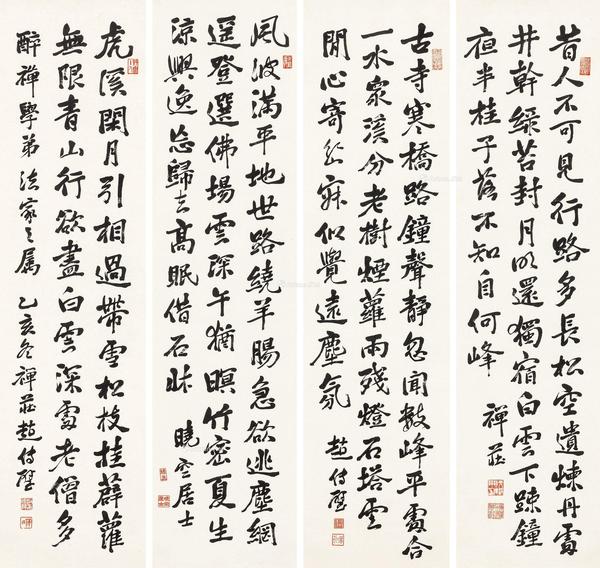 昔人不可見行路多長松空遺煉丹處
井幹綠苔封月明還獨宿白雲下疎鐘
夜半桂子落不知自何峰 禪莊
古寺寒橋路鐘聲靜忽聞數峰平處合
一水衆溪分老樹煙蘿雨殘燈石塔雲
閒心寄寐似覺遠塵氛 趙
風波滿平地世路繞羊腸急欲逃塵網
遥登選佛場雲深午猶暝竹密夏生
涼興逸忘歸去高眠借石牀 曉空居士
虎溪閑月引相過帶雪松枝挂薜蘿
無限青山行欲盡白雲深處老僧多
醉禪學弟法家之屬 乙亥冬禪莊趙